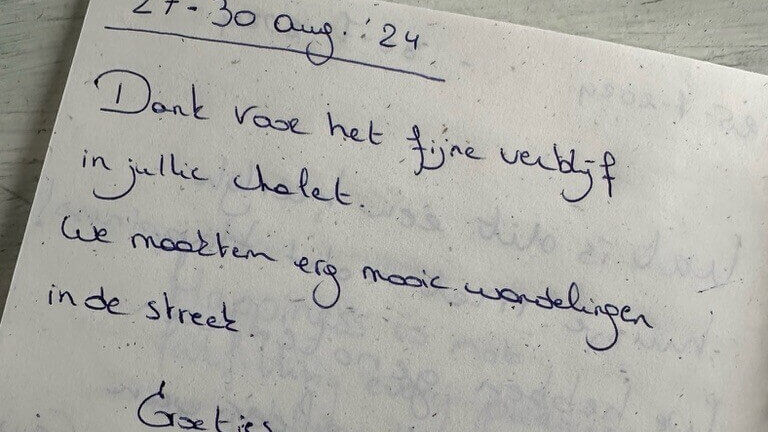 27-30 aug. '24
Dank voor het fijne verblijf
in jullie chalet.
We maakten erg mooie wandelingen
in de streek.
Groetjes